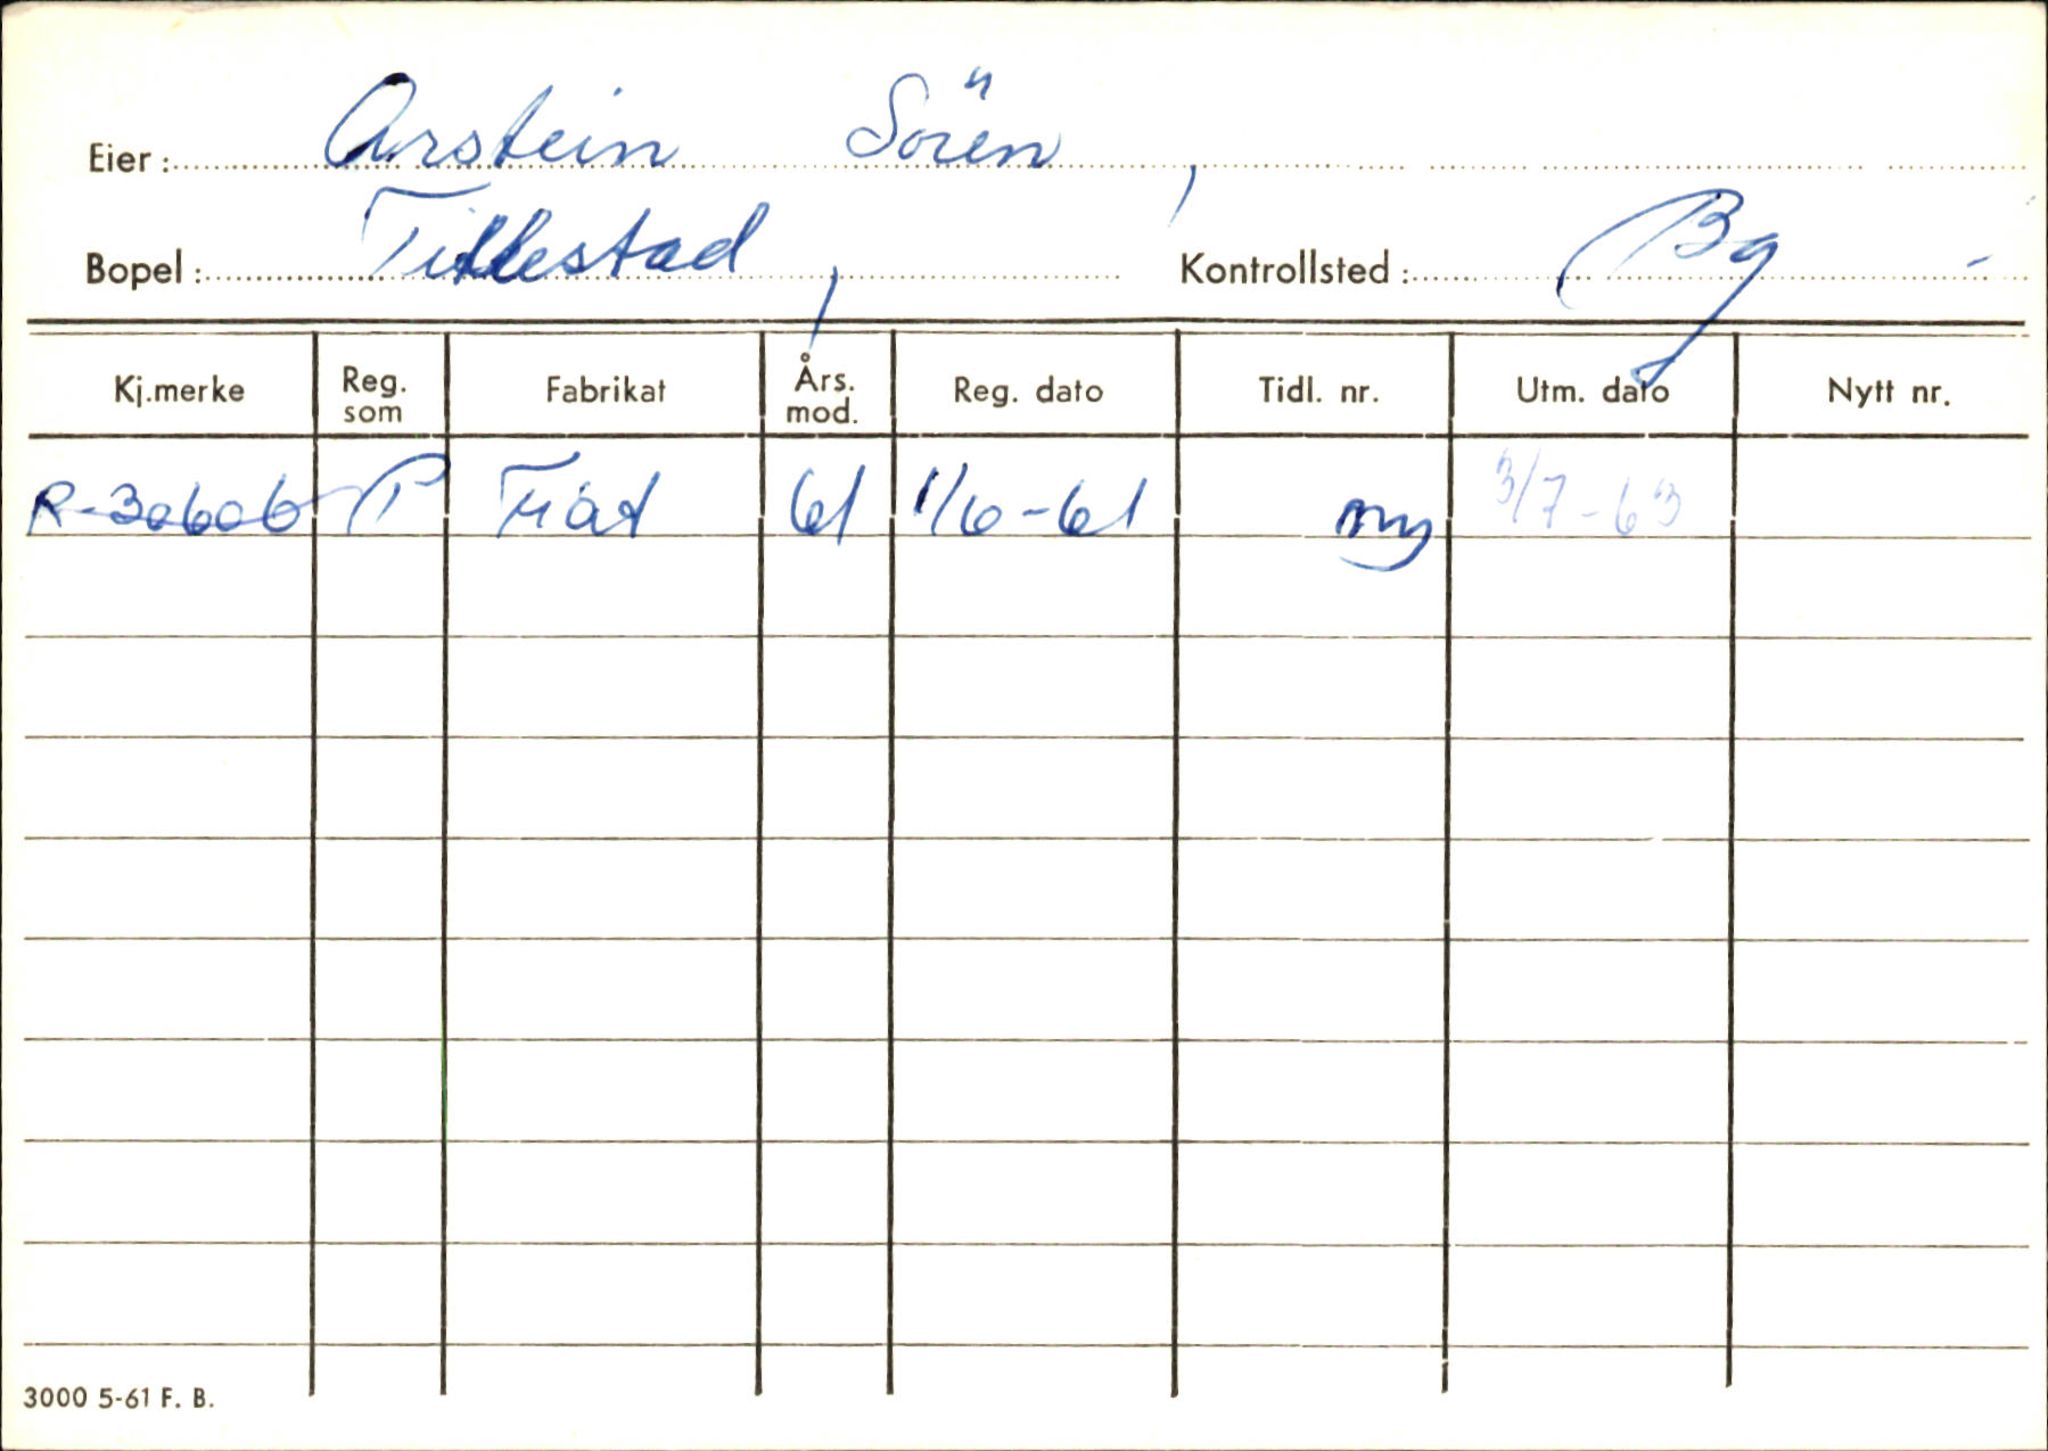 Eier: Arstein Sören,
Bopel: Tillestad, Kontrollsted: Bg
Kj.merke Reg. som Fabrikat Års. mod. Reg. dato Tidl. nr. Utm. dato Nytt nr.
R-30606 P Fiat 61 1/6-61 ny 3/7-63
3000 5-61 F. B.